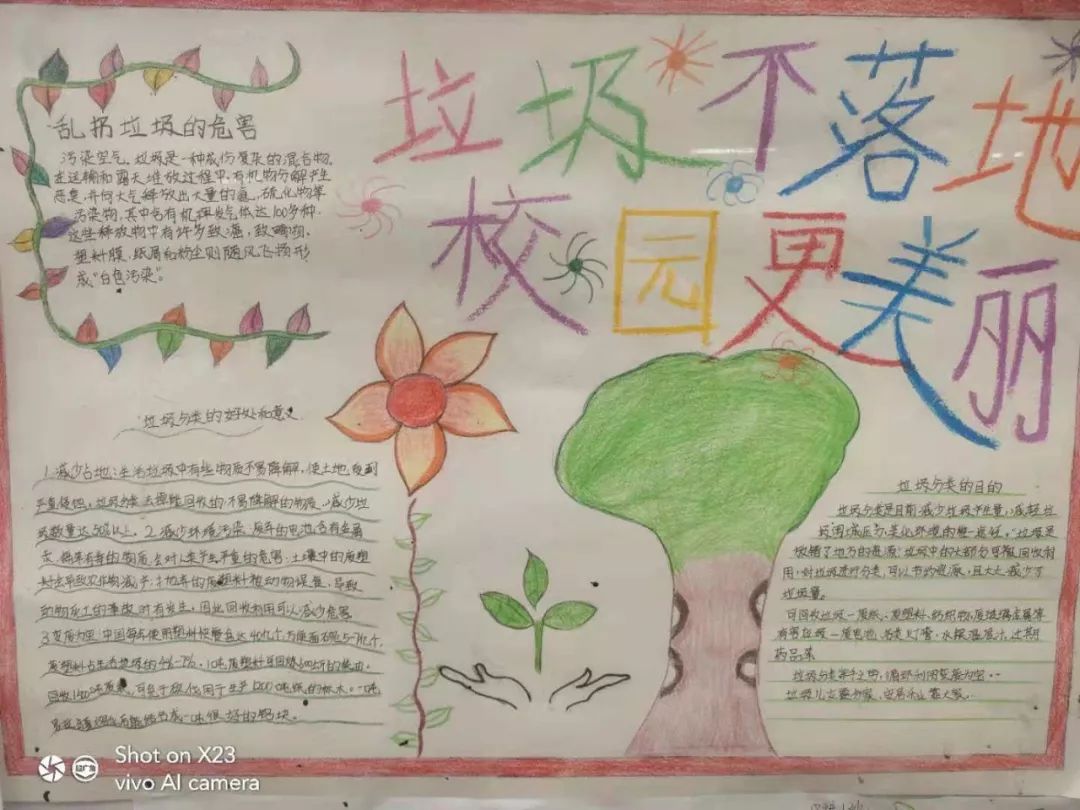 垃圾不落地
校园更美丽
乱扔垃圾的危害
污染空气。垃圾是一种成份复杂的混合物。
在运输和露天堆放过程中,有机物分解产生
恶臭,并向大气释放出大量的氨、硫化物等
污染物,其中含有机挥发气体达100多种,
这些释放物中有许多致癌,致畸物。
塑料膜、纸屑和粉尘则随风飞扬形
成"白色污染"。
垃圾分类的好处和意义
1.减少占地:生活垃圾中有些物质不易降解,使土地受到
严重侵蚀。垃圾分类去掉能回收的、不易降解的物质,减少垃
圾数量达50%以上。2.减少环境污染 废弃的电池含有金属
等有毒的物质,会对人类产生严重的危害,土壤中的废塑
料会导致农作物减产,抛弃的废塑料被动物误食,导致
动物死亡的事故时有发生,因此回收利用可以减少危害。
3.变废为宝 中国每年使用塑料快餐盒达40亿个,方便面碗5-7亿个,
废塑料占生活垃圾的4%-7%。1吨废塑料可回炼600斤的柴油。
回收1500吨废纸,可免于砍伐用于生产1200吨纸的林木。一吨
垃圾分类的目的
垃圾分类
美化环境的
放错了地方的资源
用,对垃圾进行分类,可以节约资源,且大大减少了
垃圾量。
可回收垃圾—废纸、废塑料、纺织物、废玻璃、金属等
有害垃圾—废电池、水银温度计、过期
药品等
垃圾分类举手之劳,循环利用变废为宝。
Shot on X23
vivo AI camera